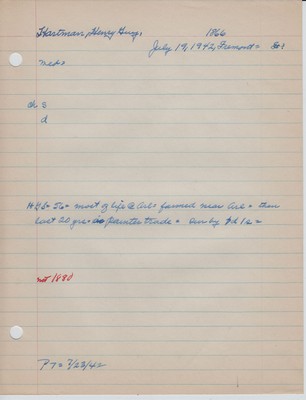 Hartman, Henry Aug. 1866
July 19, 1942, Fremont =
Neb =
ch 3
d
= 56 = most of life @ Arl = farmed near Arl = then
last 20 yrs = painter trade = sur by
not 1880
PT = 7/23/42